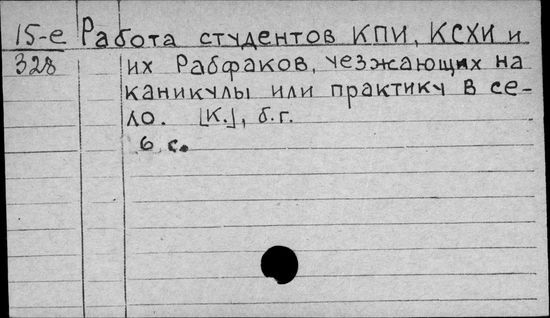 15-е Работа студентов КПИ, КСХИ и
328 их Рабфаков, уезжающих на
каникулы или практику в се-
ло. [К.], б.г.
6 с.